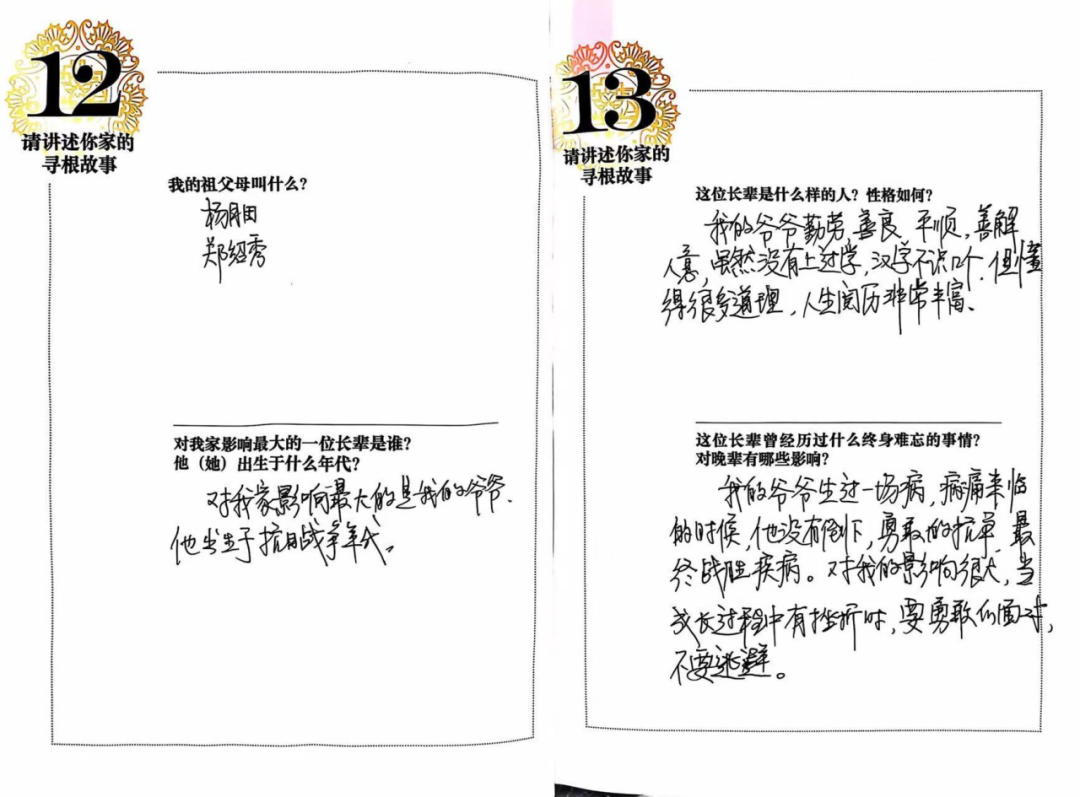 12
请讲述你家的
寻根故事
我的祖父母叫什么?
杨月田
郑绍秀
对我家影响最大的一位长辈是谁?
他(她)出生于什么年代?
对我家影响最大的是我的爷爷、
他出生于抗日战争年代。
13
请讲述你家的
寻根故事
这位长辈是什么样的人?性格如何?
我的爷爷勤劳、善良、平顺,善解
人意,虽然没有上过学,汉字不识几个,但懂
得很多道理,人生阅历非常丰富、
这位长辈曾经历过什么终身难忘的事情?
对晚辈有哪些影响?
我的爷爷生过一场病,病痛来临
的时候,他没有倒下,勇敢的抗争,最
终战胜疾病。对我的影响很大,当
成长过程中有挫折时,要勇敢的面对,
不要逃避。